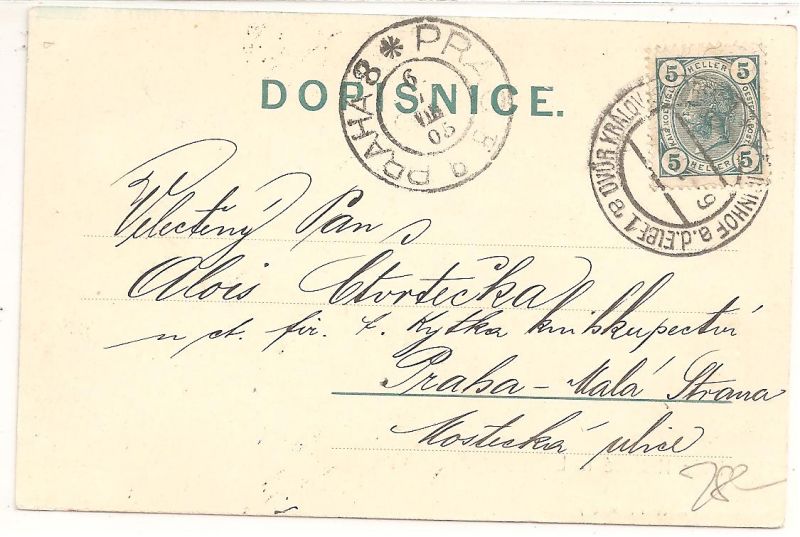 DOPISNICE.
PRAHA 8 * PRAHA 8 a
9
VIII
05
DVŮR KRÁLOV
INHOF a.d. ELBE 1
9
5 HELLER 5
5 HELLER 5
Velectěný Pan
Alois Čtvrtečka
u ct. fir. Kytka knihkupectví
Praha - Malá Strana
Mostecká ulice